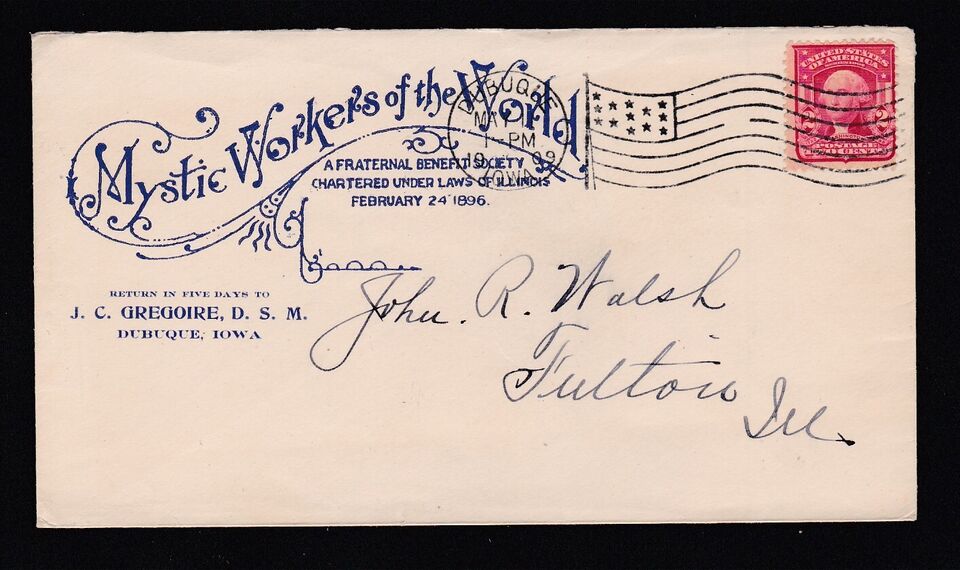 Mystic Workers of the World.
A FRATERNAL BENEFIT SOCIETY
CHARTERED UNDER LAWS OF ILLINOIS
FEBRUARY 24 1896.
RETURN IN FIVE DAYS TO
J. C. GREGOIRE, D. S. M.
DUBUQUE, IOWA
DUBUQUE
MAY
1 - PM
19 09
IOWA
UNITED STATES
OF AMERICA
WASHINGTON
POSTAGE
2 CENTS 2
John. R. Walsh
Fulton
Ill.